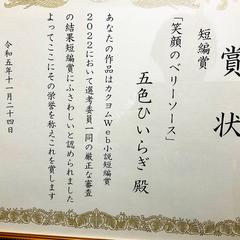 賞状
短編賞
「笑顔のベリーソース」
五色ひいらぎ 殿
あなたの作品はカクヨムWeb小説短編賞
2022において選考委員一同の厳正な審査
の結果短編賞にふさわしいと認められました
よってここにその栄誉を称えこれを賞します
令和五年十一月二十四日